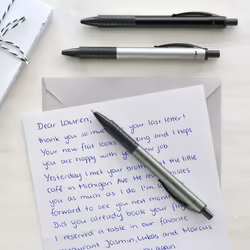 Dear Lauren,
thank you so much for your last letter!
Your new flat looks amazing and I hope
you are happy with your new job
Yesterday I met your brother at the little
café in Michigan Ave. He misses
you as much as I do. I'm
forward to see you next month
Did you already book your flight
I reserved a table in our favorite
restaurant Jasmin, Lukas and Marcus
again